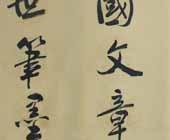 國文章
世筆墨